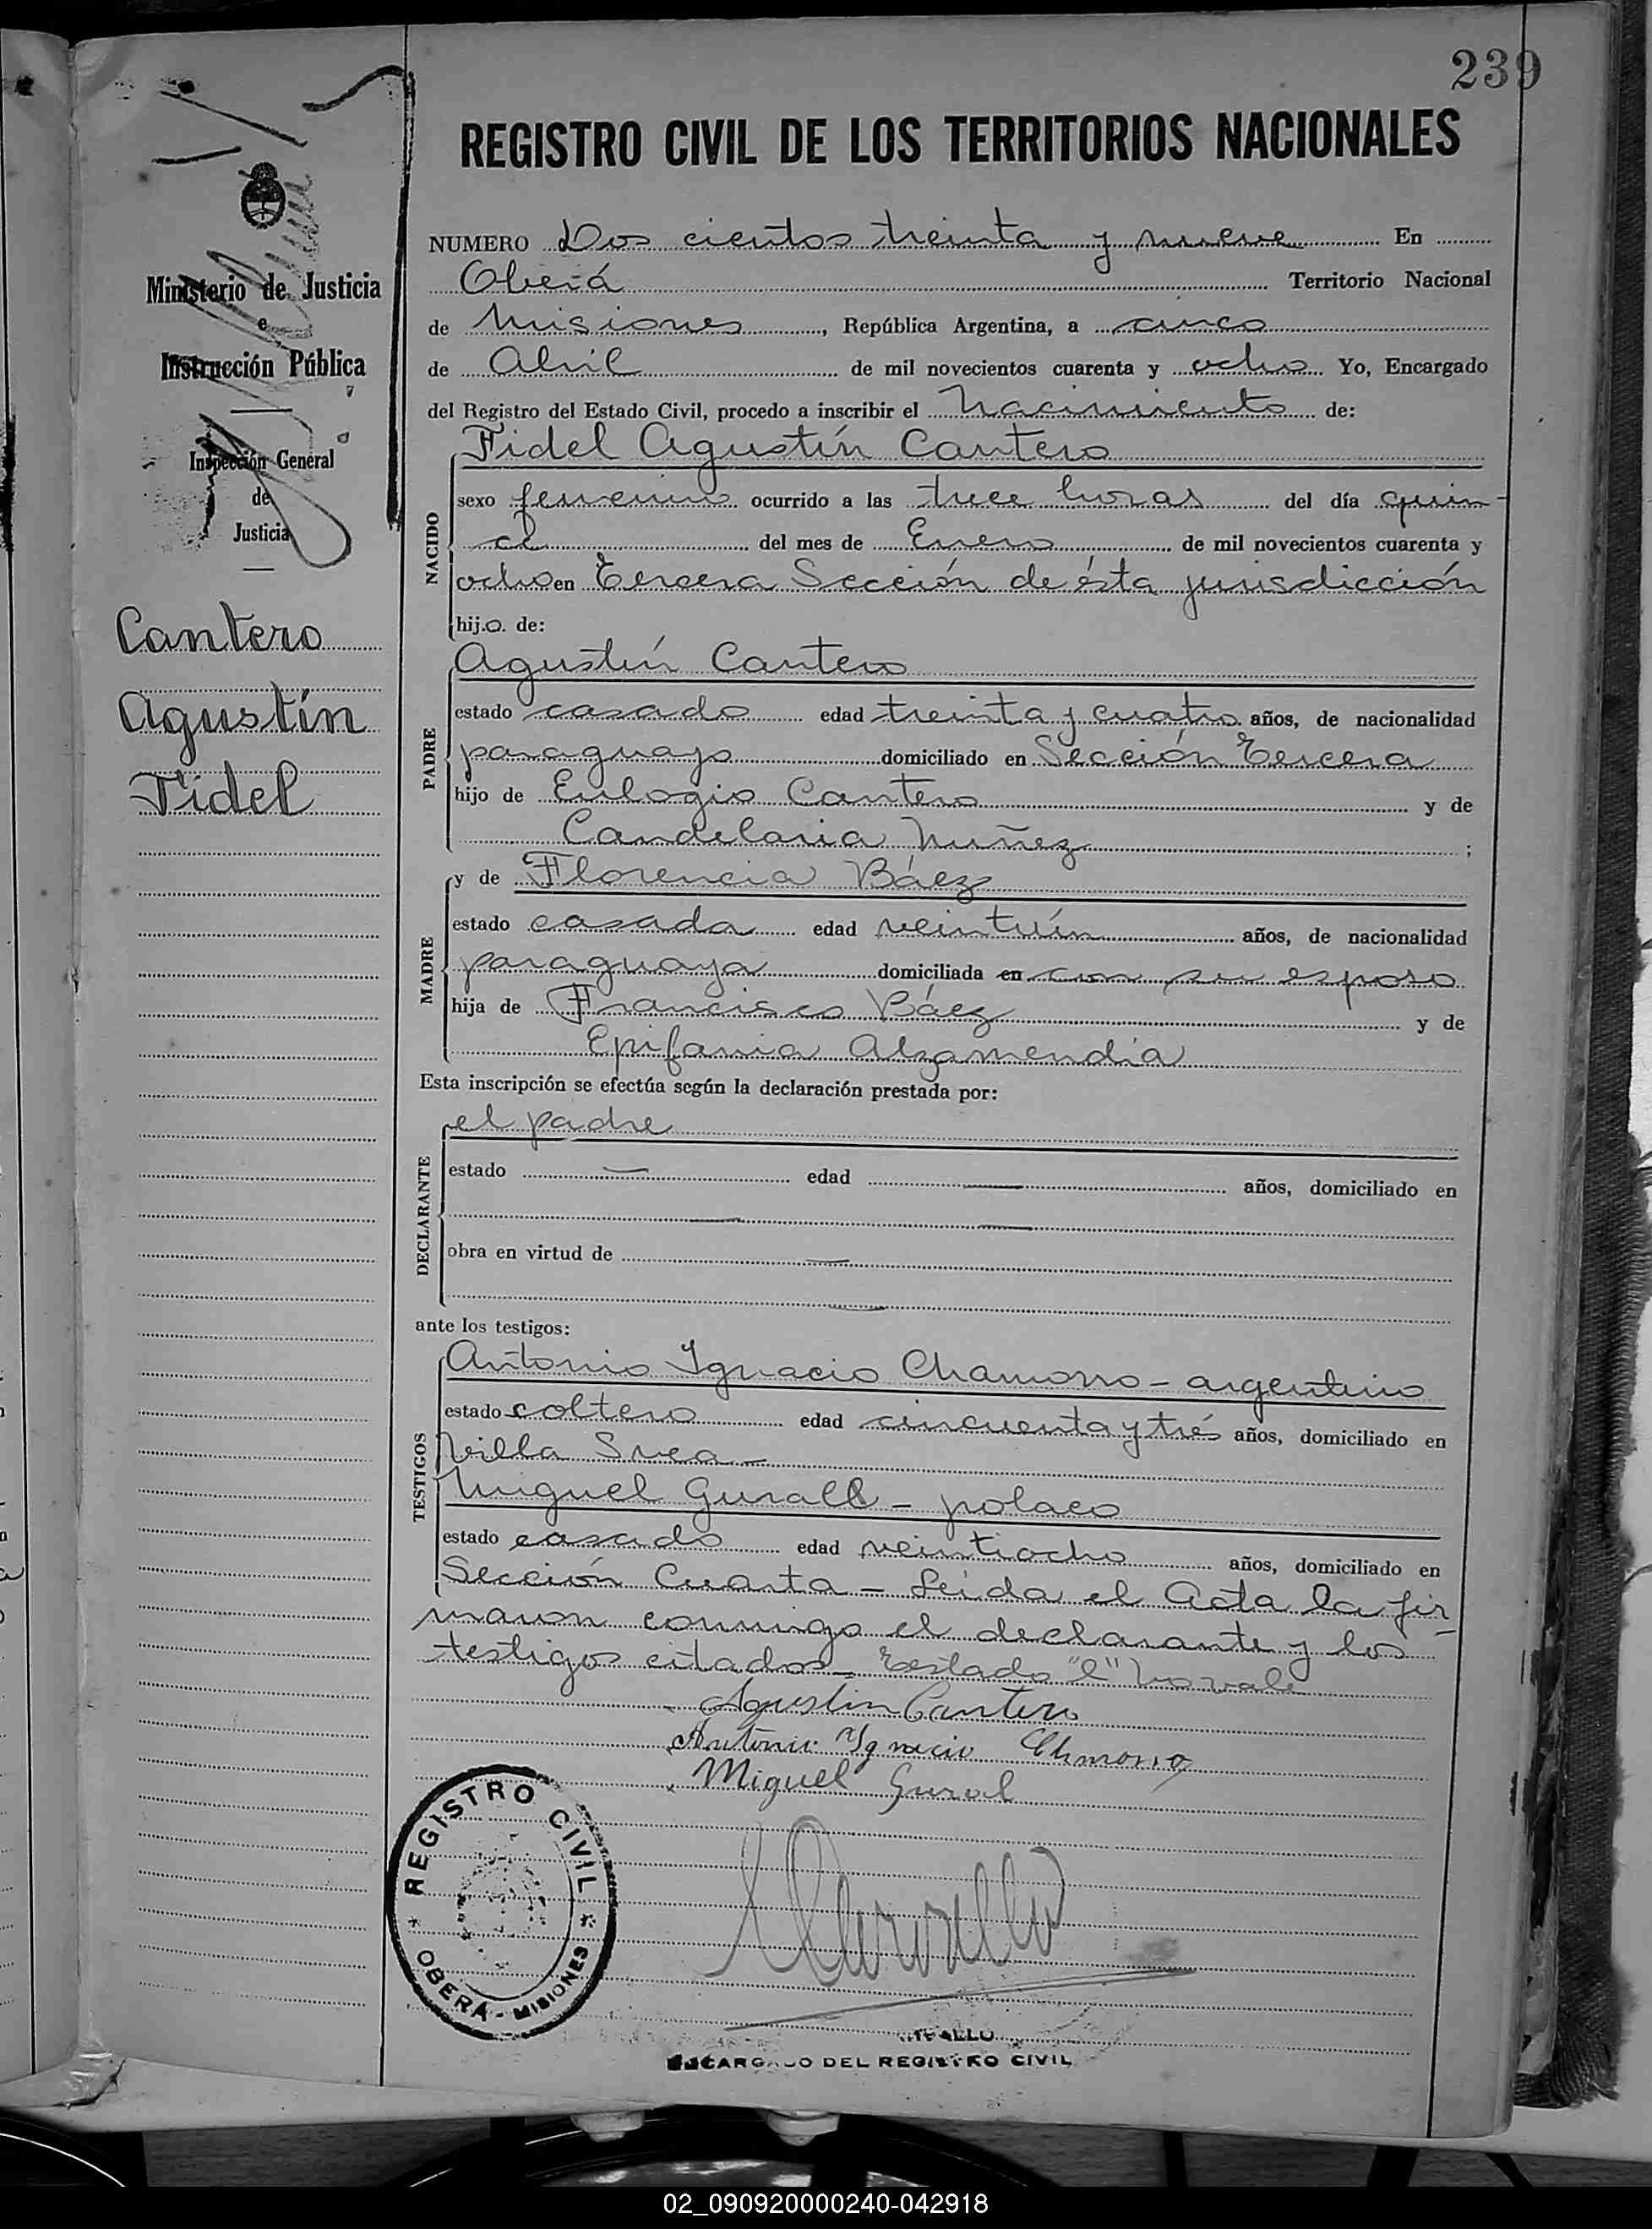 239
REGISTRO CIVIL DE LOS TERRITORIOS NACIONALES
Ministerio de Justicia
e
Instrucción Pública
Inspección General
de
Justicia
Cantero
Agustín
Fidel
NUMERO Dos cientos treinta y nueve En
Oberá Territorio Nacional
de Misiones, República Argentina, a cinco
de Abril de mil novecientos cuarenta y ocho Yo, Encargado
del Registro del Estado Civil, procedo a inscribir el Nacimiento de:
Fidel Agustín Cantero
NACIDO
sexo femenino ocurrido a las trece horas del día quin-
ce del mes de Enero de mil novecientos cuarenta y
ocho en Tercera Sección de ésta jurisdicción
hijo de:
Agustín Cantero
PADRE
estado casado edad treinta y cuatro años, de nacionalidad
paraguayo domiciliado en Sección Tercera
hijo de Eulogio Cantero y de
Candelaria Nuñez ;
y de Florencia Báez
MADRE
estado casada edad veintiún años, de nacionalidad
paraguaya domiciliada en con su esposo
hija de Francisco Báez y de
Epifania Alzamendia
Esta inscripción se efectúa según la declaración prestada por:
el padre
DECLARANTE
estado — edad — años, domiciliado en
— —
obra en virtud de —
—
ante los testigos:
Antonio Ignacio Chamorro - argentino
TESTIGOS
estado soltero edad cincuenta y trés años, domiciliado en
Villa Svea -
Miguel Gurall - polaco
estado casado edad veintiocho años, domiciliado en
Sección Cuarta - Leída el Acta la fir-
maron conmigo el declarante y los
testigos citados - Testado "l" No vale
Agustin Cantero
Antonio Ygnacio Chmorro
Miguel Gural
REGISTRO CIVIL
OBERÁ - MISIONES
ENCARGADO DEL REGISTRO CIVIL
02_090920000240-042918